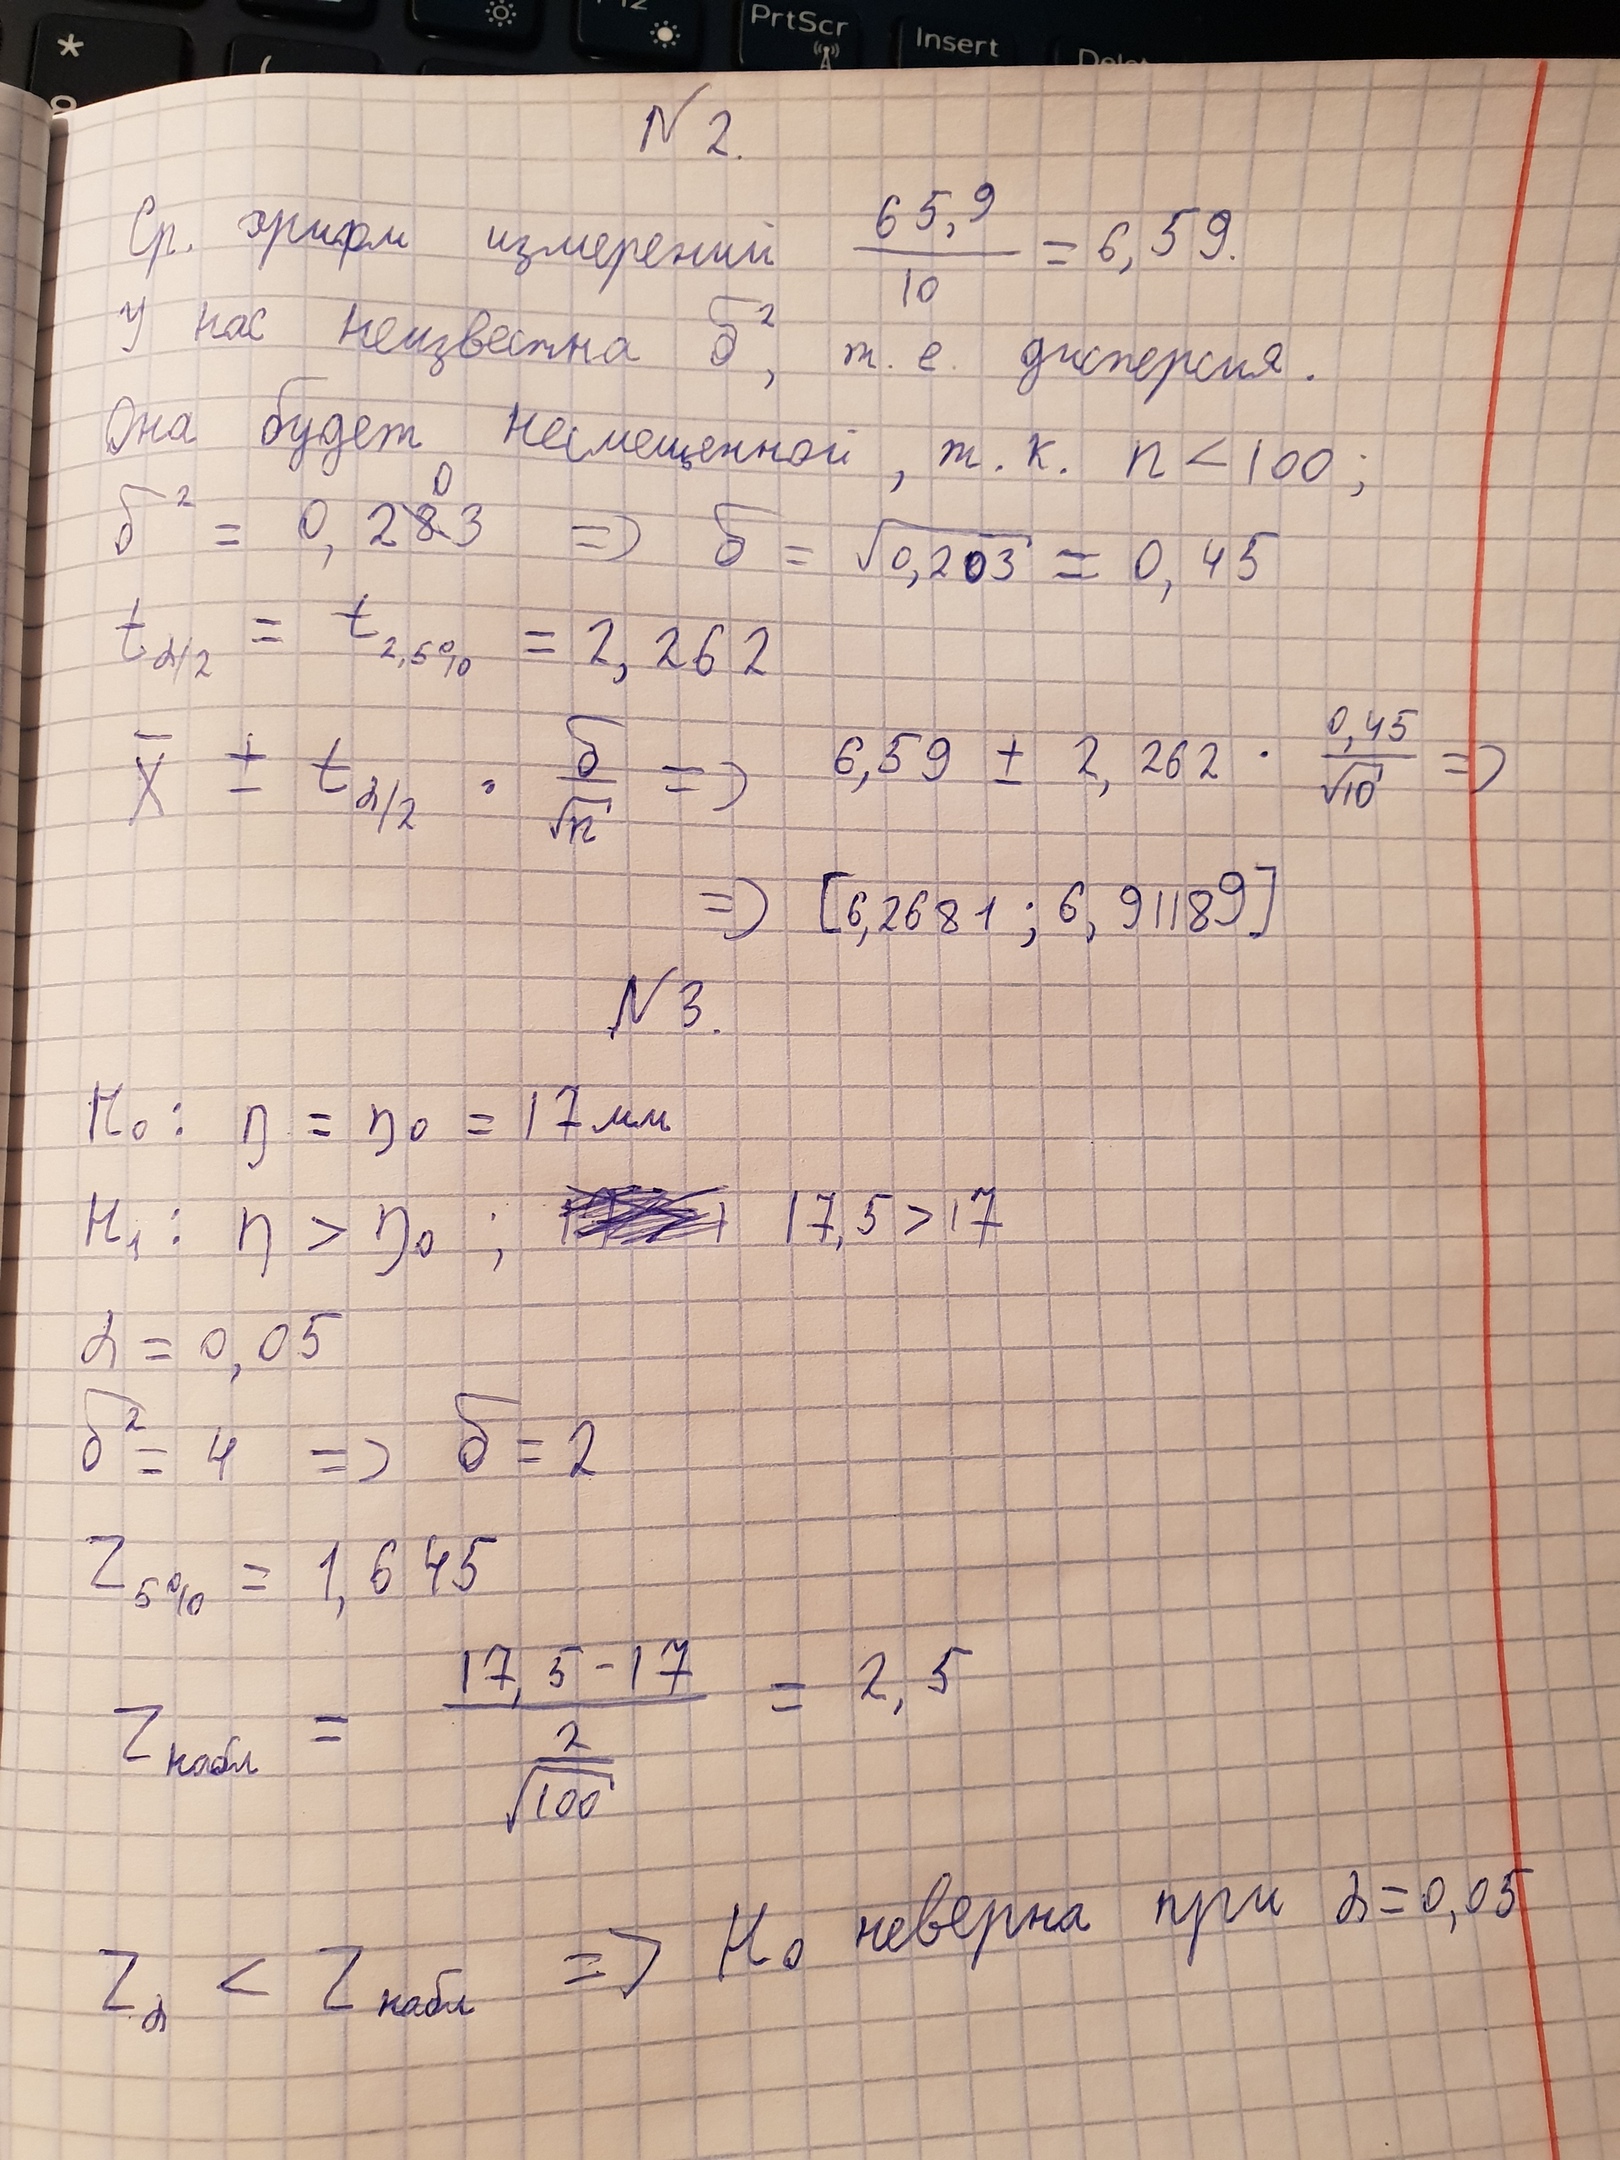 PrtScr
Insert
N 2.
Ср. арифм измерений 65,9 / 10 = 6,59.
У нас неизвестна σ², т. е. дисперсия.
Она будет несмещенной, т. к. n < 100;
σ² = 0,203 => σ = √0,203 = 0,45
t α/2 = t 2,5% = 2,262
X̄ ± t α/2 · σ/√n => 6,59 ± 2,262 · 0,45/√10 =>
=> [6,2681; 6,91189]
N 3.
H₀: η = η₀ = 17 мм
H₁: η > η₀; 17,5 > 17
α = 0,05
σ² = 4 => σ = 2
Z 5% = 1,645
Z набл = (17,5 - 17) / (2/√100) = 2,5
Z α < Z набл => H₀ неверна при α = 0,05